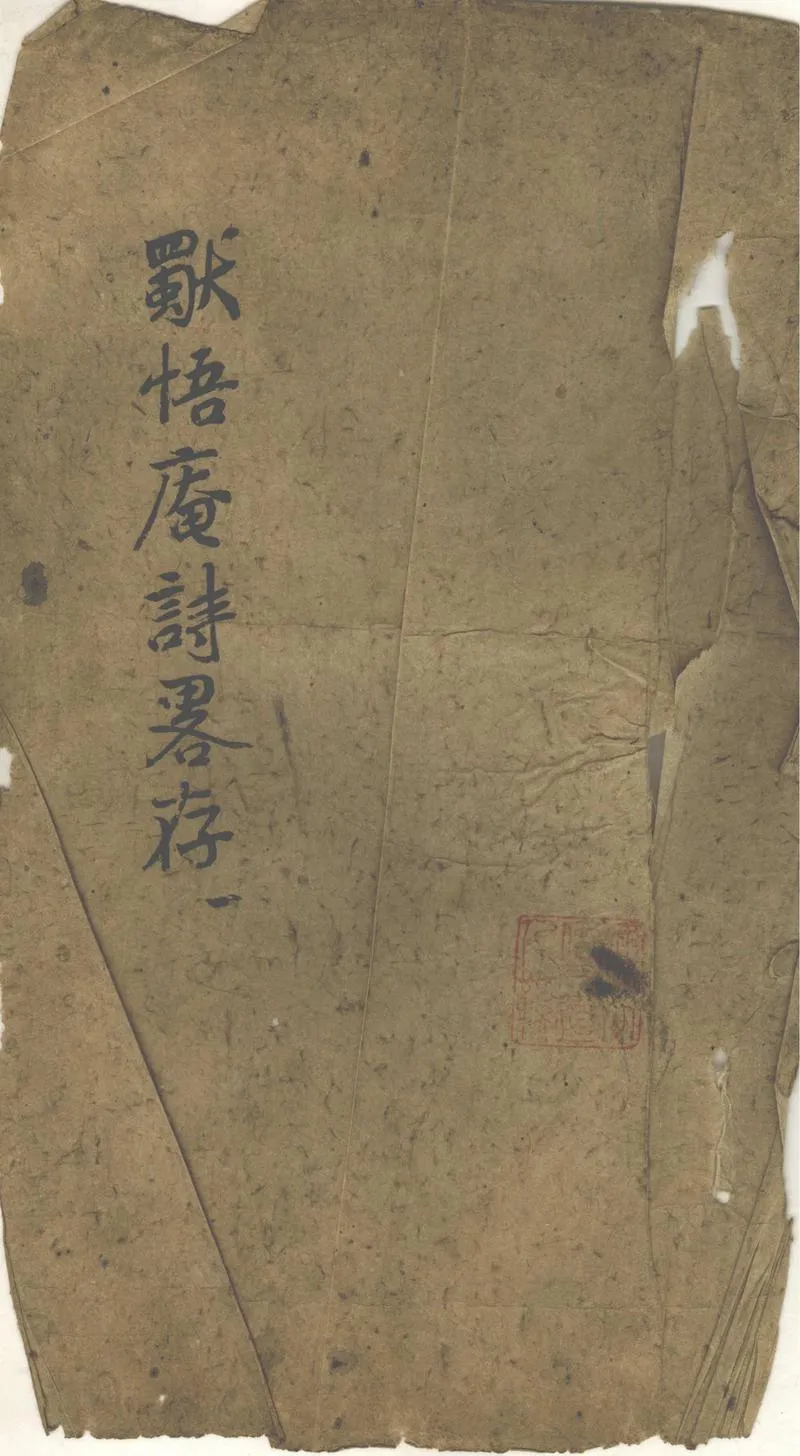 獨悟庵詩畧存
一